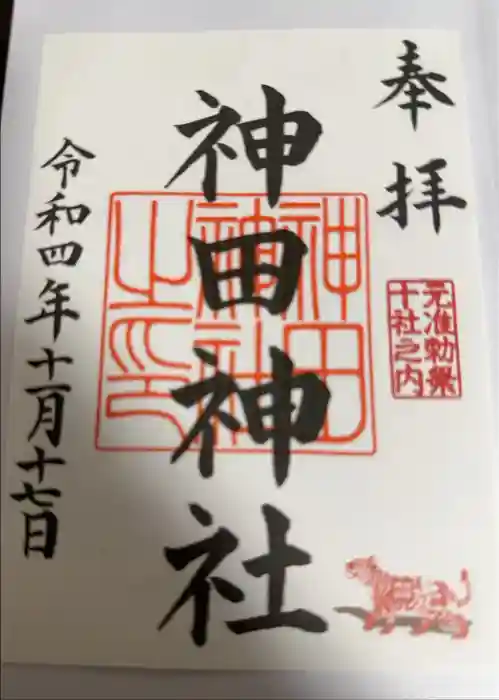 奉拝
元准勅祭
十社之内
神田神社
神田
神社
之印
令和四年十一月十七日